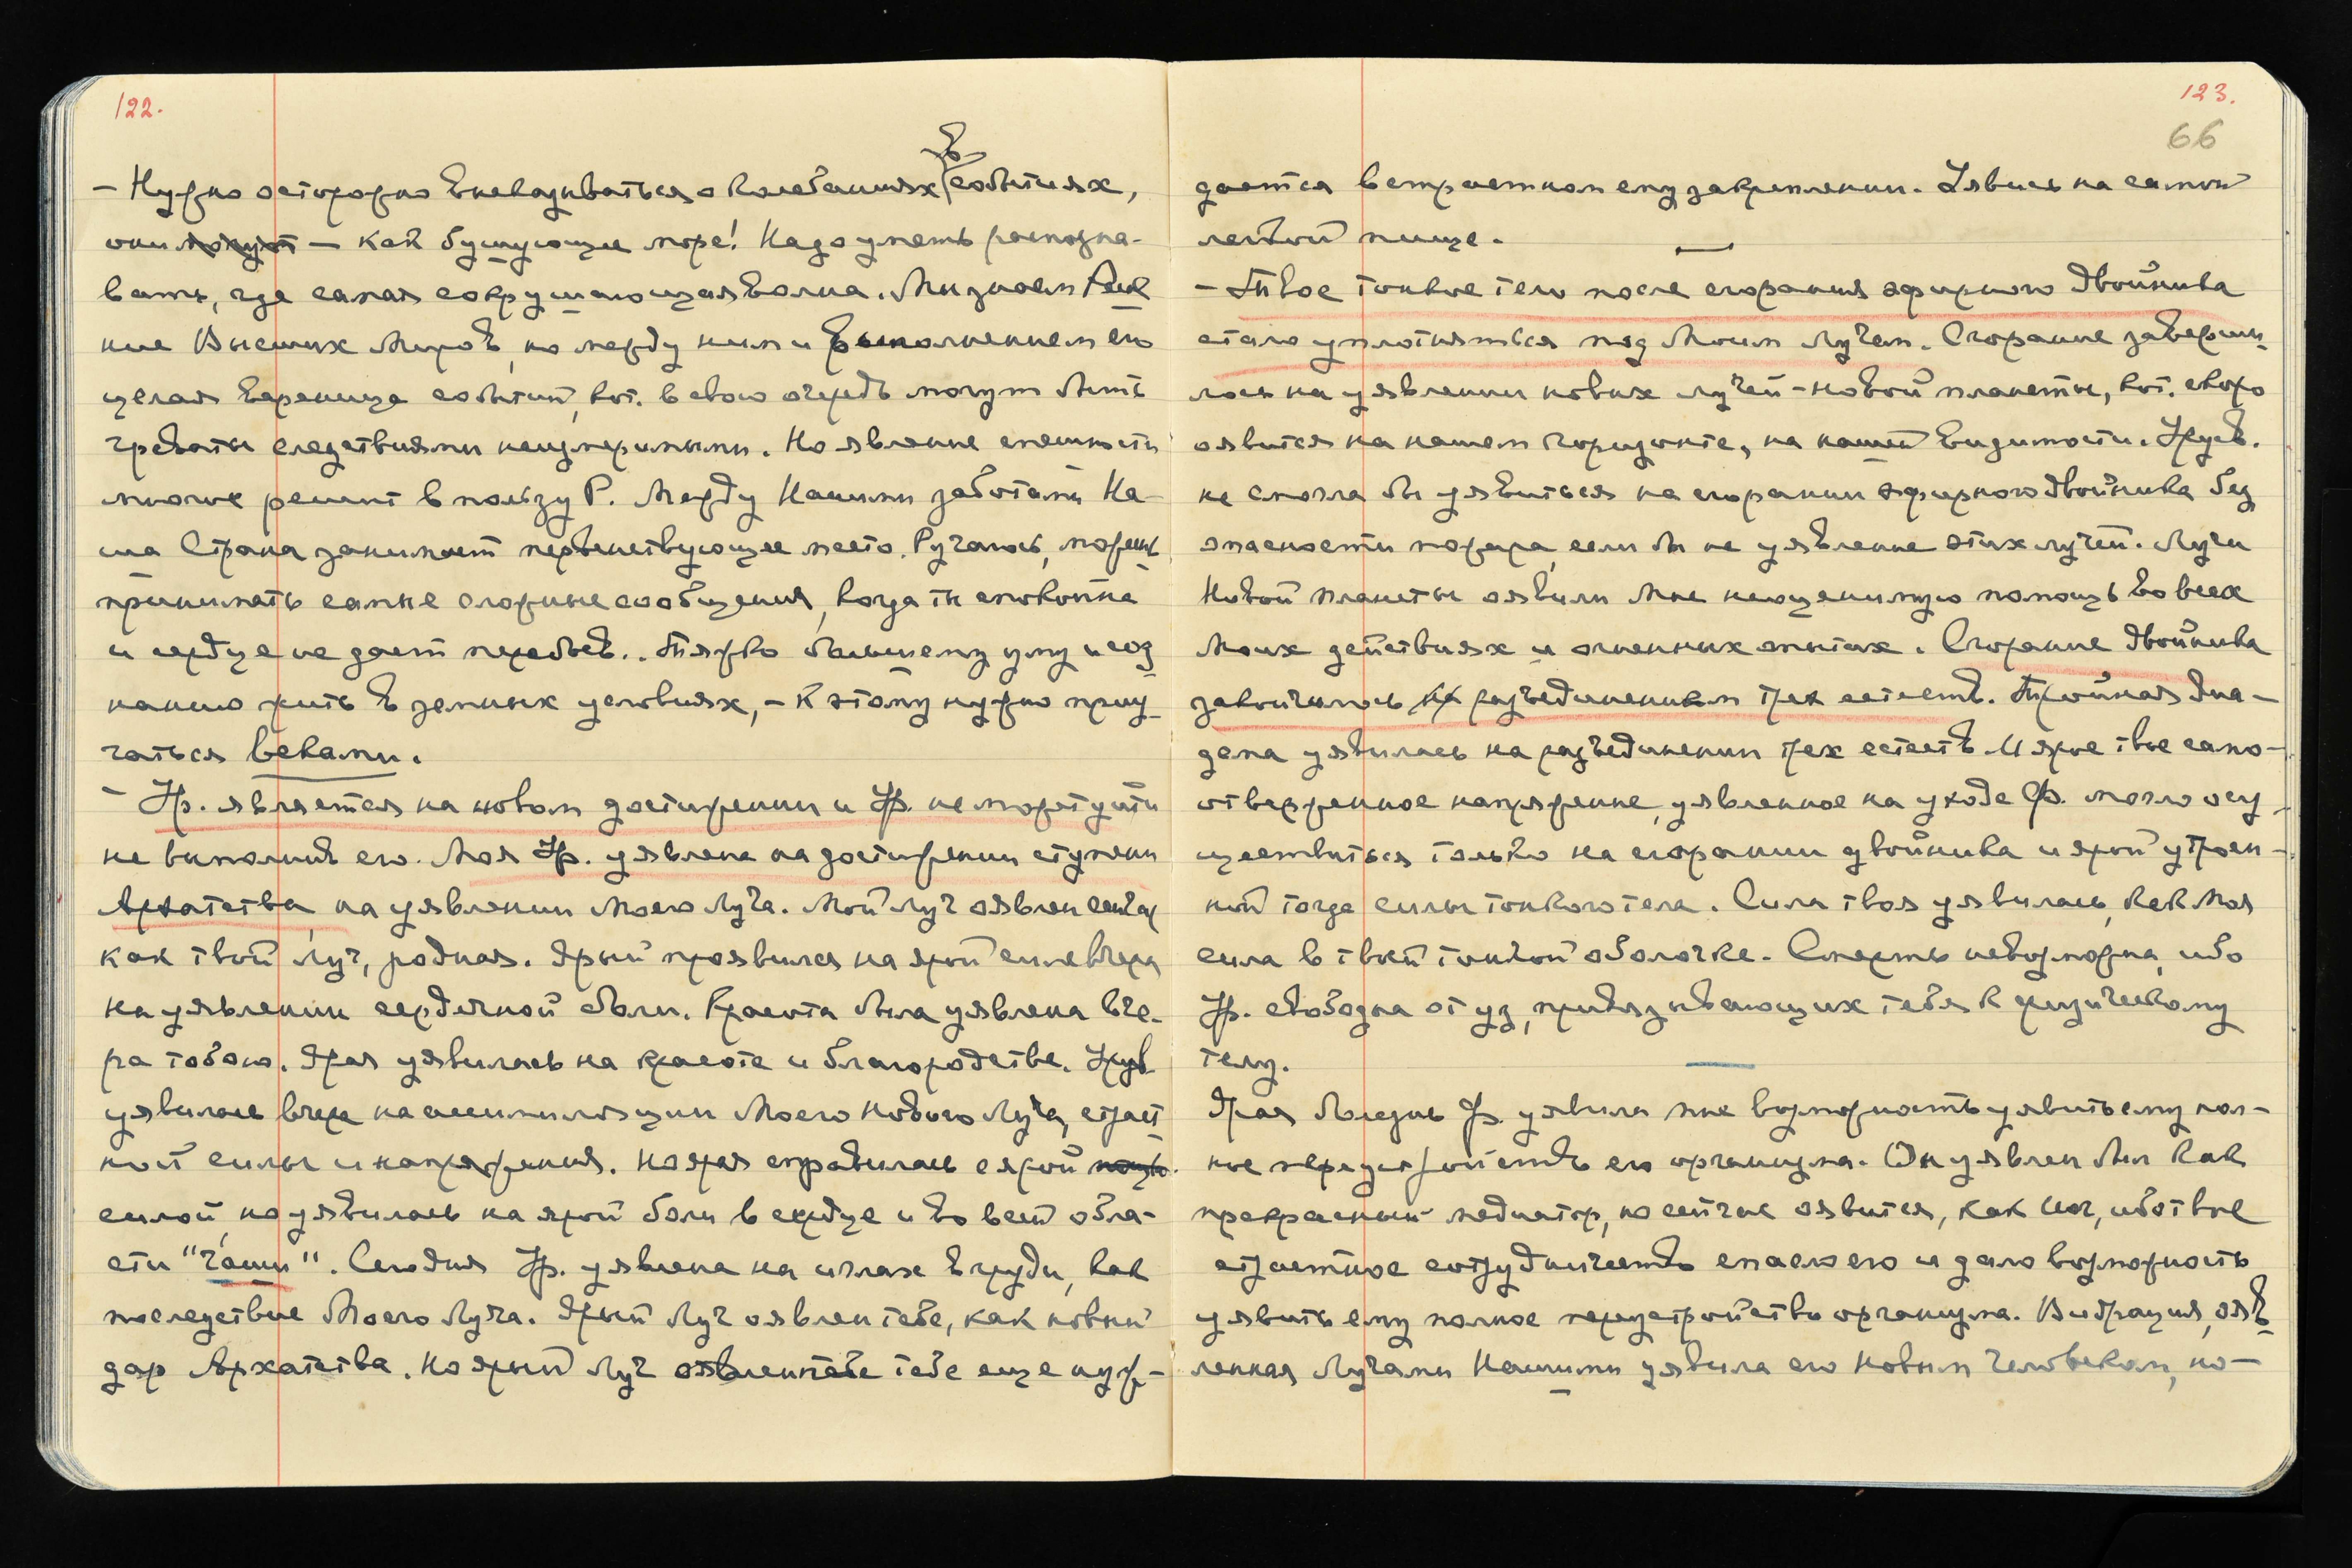 122.
в
– Нужно осторожно высказываться о колебаниях событиях,
они могут – как бушующее море! Надо уметь распозна-
вать, где самая сокрушающая волна. Мы знаем
ние Высших Миров, но между ним и выполнением его
целая вереница событий, кот. в свою очередь могут быть
чреваты следствиями неизмеримыми. Но явление спешности
многое решит в пользу Р. Между Нашими заботами На-
ша Страна занимает первенствующее место. Ручаюсь, можешь
принимать самые сложные сообщения, когда ты спокойна
и сердце не дает перебоев. Тяжко большему уму и соз
нанию жить в земных условиях, – к этому нужно приу-
чаться веками.
– Ур. является на новом достижении и Ур. не может уйти
не выполнив его. Моя Ур. уявлена на достижении ступени
Архатства, на уявлении Моего Луча. Мой луч оявлен сейчас
как твой луч, родная. Ярый проявился на ярой силе вчера
на уявлении сердечной боли. Красота была уявлена вче-
ра тобою. Ярая уявилась на красоте и благородстве. Урув.
уявилась вчера на ассимиляции Моего Нового Луча, страст
ной силы и напряжения. Но ярая справилась с ярой
силой, но уявилась на ярой боли в сердце и во всей обла-
сти "чаши". Сегодня Ур. уявлена на иглах в груди, как
последствие Моего Луча. Ярый Луч оявлен тебе, как новый
дар Архатства. Но ярый Луч оявлен тебе тебе еще нуж-
123.
66
дается в страстном ему закреплении. Уявись на самой
легкой пище.
– Твое тонкое тело после сгорания эфирного двойника
стало уплотняться под Моим Лучем. Сгорание заверши-
лось на уявлении новых лучей – новой планеты, кот. скоро
оявится на нашем горизонте, на нашей видимости. Урув.
не смогла бы уявиться на сгорании эфирного двойника без
опасности пожара, если бы не уявление этих лучей. Лучи
Новой Планеты оявили Мне неоценимую помощь во всех
Моих действиях и огненных опытах. Сгорание двойника
закончилось на разъединением трех естеств. Тройная диа-
дема уявилась на разъединении трех естеств. И ярое твое само-
отверженное напряжение, уявленное на уходе Ф. могло осу-
ществиться только на сгорании двойника и ярой утроен-
ной тогда силы тонкого тела. Сила твоя уявилась, как Моя
сила в твоей тонкой оболочке. Смерть невозможна, ибо
Ур. свободна от уз, привязывающих тебя к физическому
телу.
Ярая болезнь Ф. уявила мне возможность уявить ему пол-
ное переустройство его организма. Он уявлен был как
прекрасный медиатор, но сейчас оявится, как Иог, ибо твое
страстное сотрудничество спасло его и дало возможность
уявить ему полное переустройство организма. Вибрация, ояв
ленная Лучами Нашими уявила его новым человеком, но-